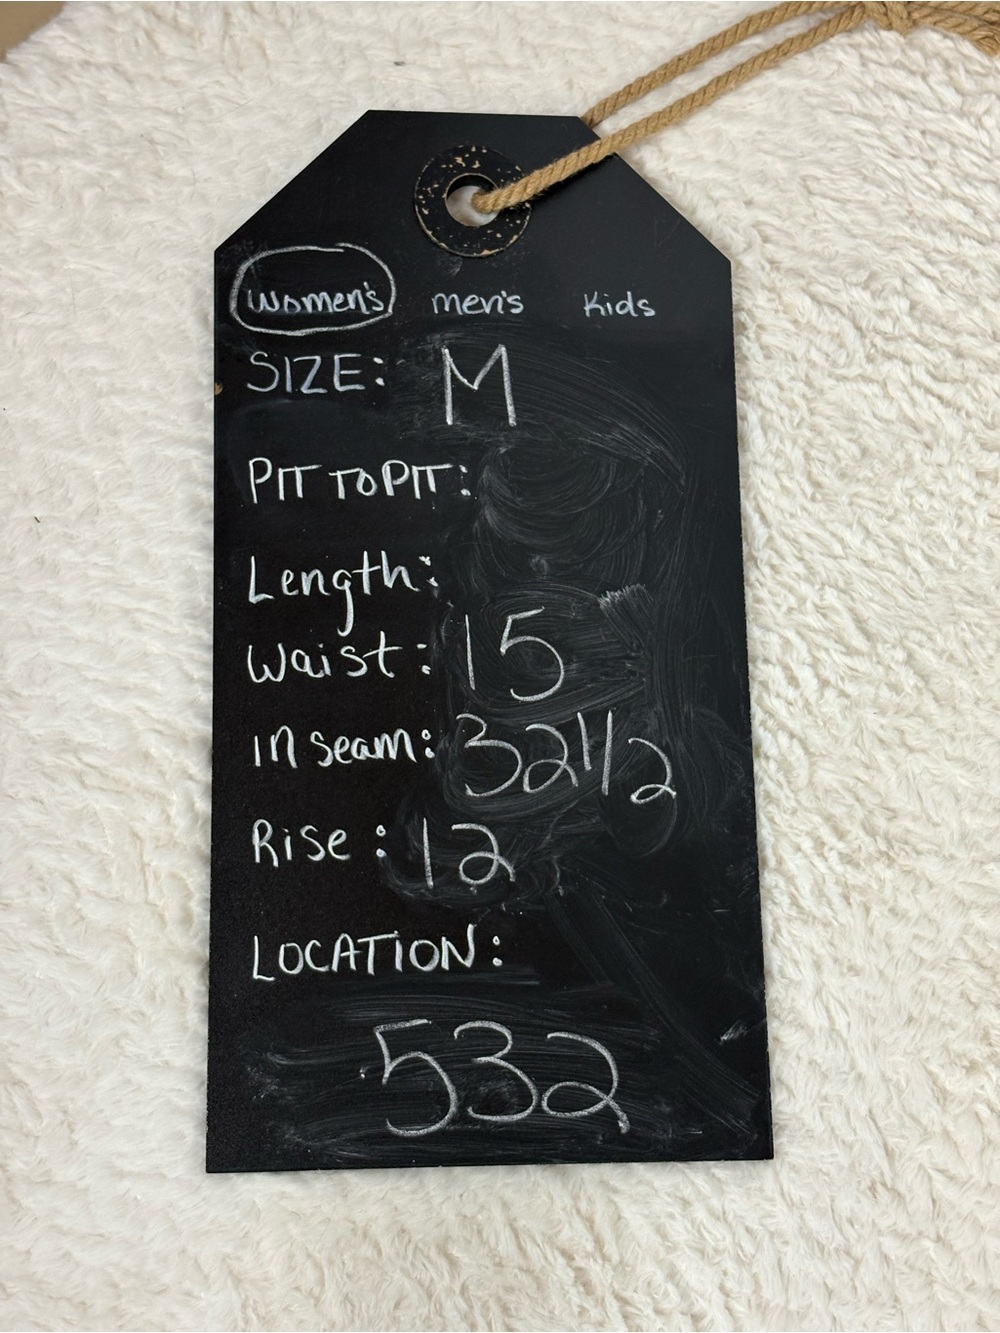 Women's men's Kids
SIZE: M
PIT TO PIT:
Length:
Waist: 15
inseam: 32 1/2
Rise: 12
LOCATION:
532